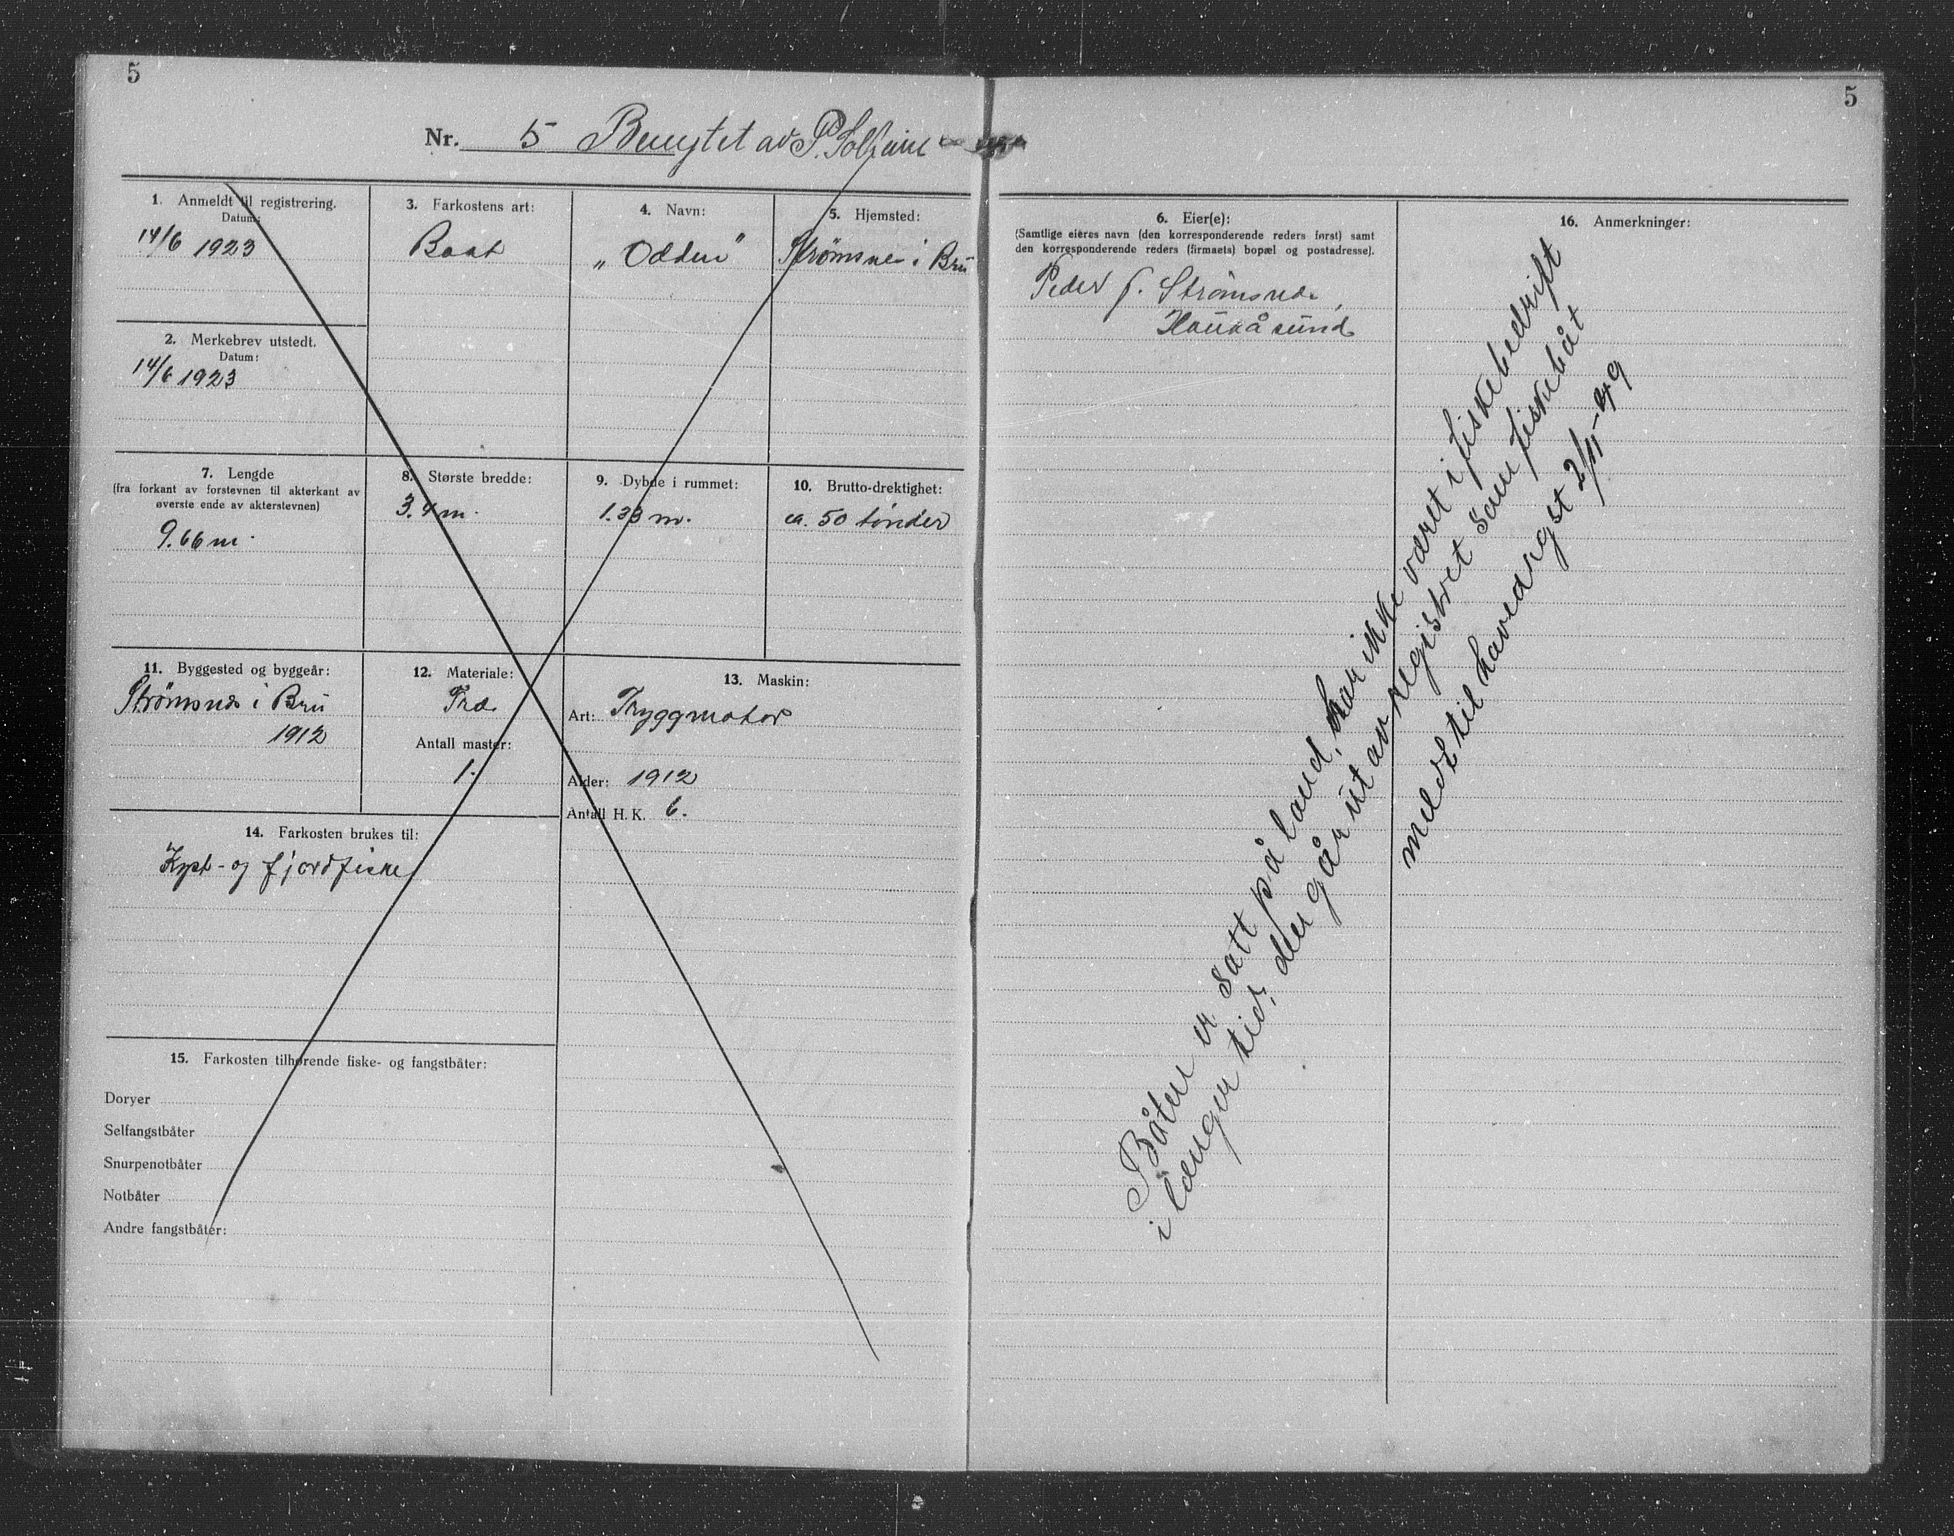 5
Nr. 5 Benyttet av P. Solheim
1. Anmeldt til registrering.
Datum:
14/6 1923
2. Merkebrev utstedt.
Datum:
14/6 1923
3. Farkostens art:
Baat
4. Navn:
„Odden"
5. Hjemsted:
Strømsnes i Bru
7. Lengde
(fra forkant av forstevnen til akterkant av
øverste ende av akterstevnen)
9.66 m.
8. Største bredde:
3.4 m.
9. Dybde i rummet:
1.33 m.
10. Brutto-drektighet:
ca. 50 tønder
11. Byggested og byggeår:
Strömsnes i Bru
1912
12. Materiale:
Træ
Antall master:
1.
13. Maskin:
Art: Tryggmotor
Alder: 1912
Antall H. K. 6.
14. Farkosten brukes til:
Kyst- og fjordfiske
15. Farkosten tilhørende fiske- og fangstbåter:
Doryer
Selfangstbåter
Snurpenotbåter
Notbåter
Andre fangstbåter:
5
6. Eier(e):
(Samtlige eieres navn (den korresponderende reders først) samt
den korresponderende reders (firmaets) bopæl og postadresse).
Peder J. Strømsnes,
Haukåsund
16. Anmerkninger:
Båten er satt på land, har ikke været i fiskebedrift
i længer tid, den går ut av registret som fiskebåt
meldt til havedngst 2/11-49